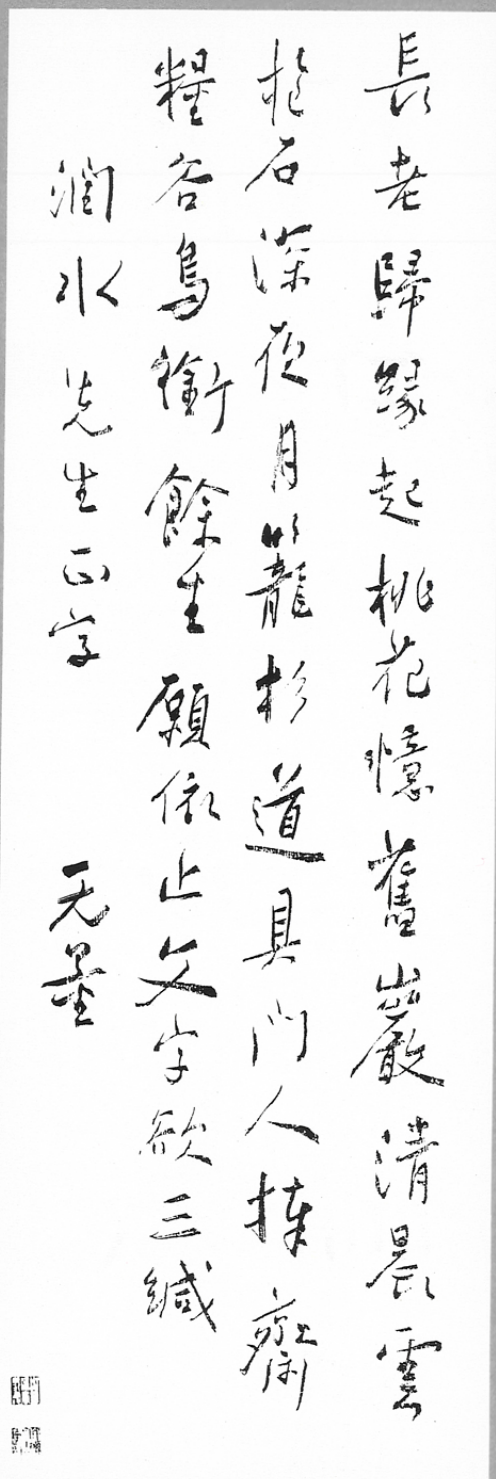 長老歸緣起桃花憶舊巖清晨雲
抱石深夜月籠杉道具門人捧齋
糧谷鳥銜餘生願依止文字欲三緘
潤水先生正字 无量